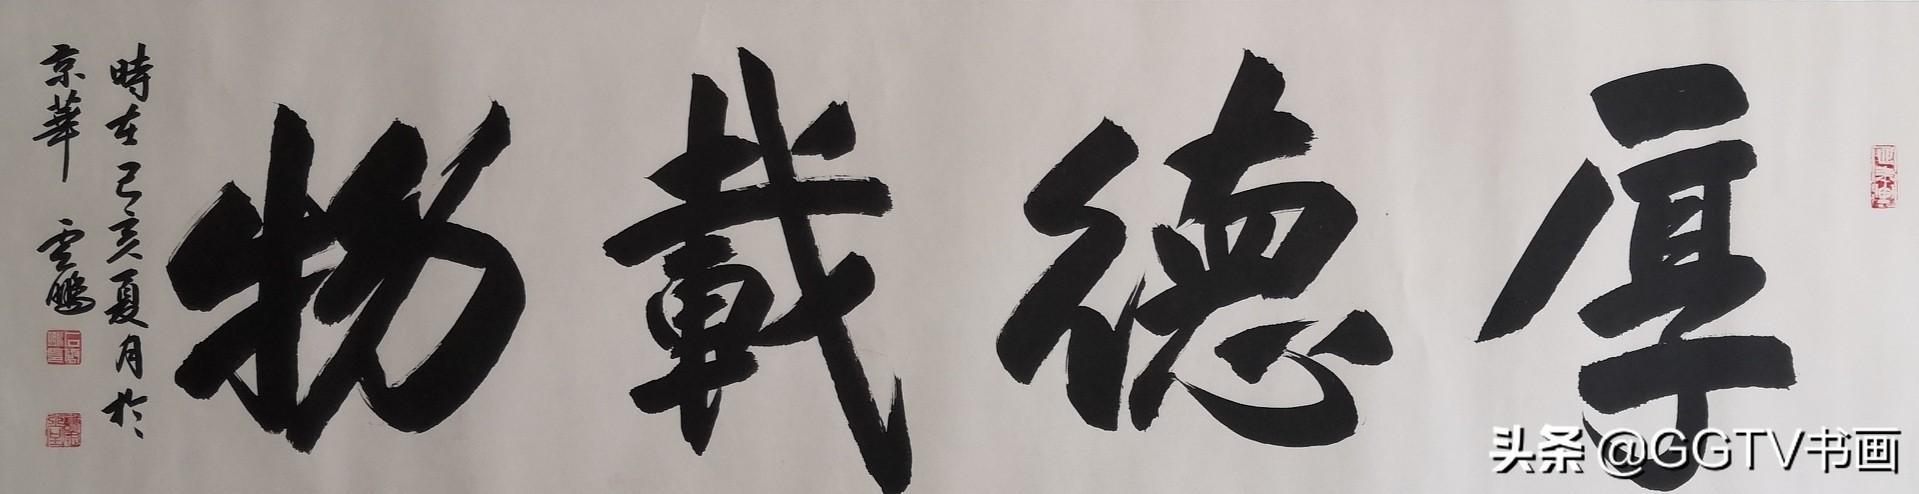 厚德載物
時在己亥夏月於
京華 雲鵬
头条@GGTV书画